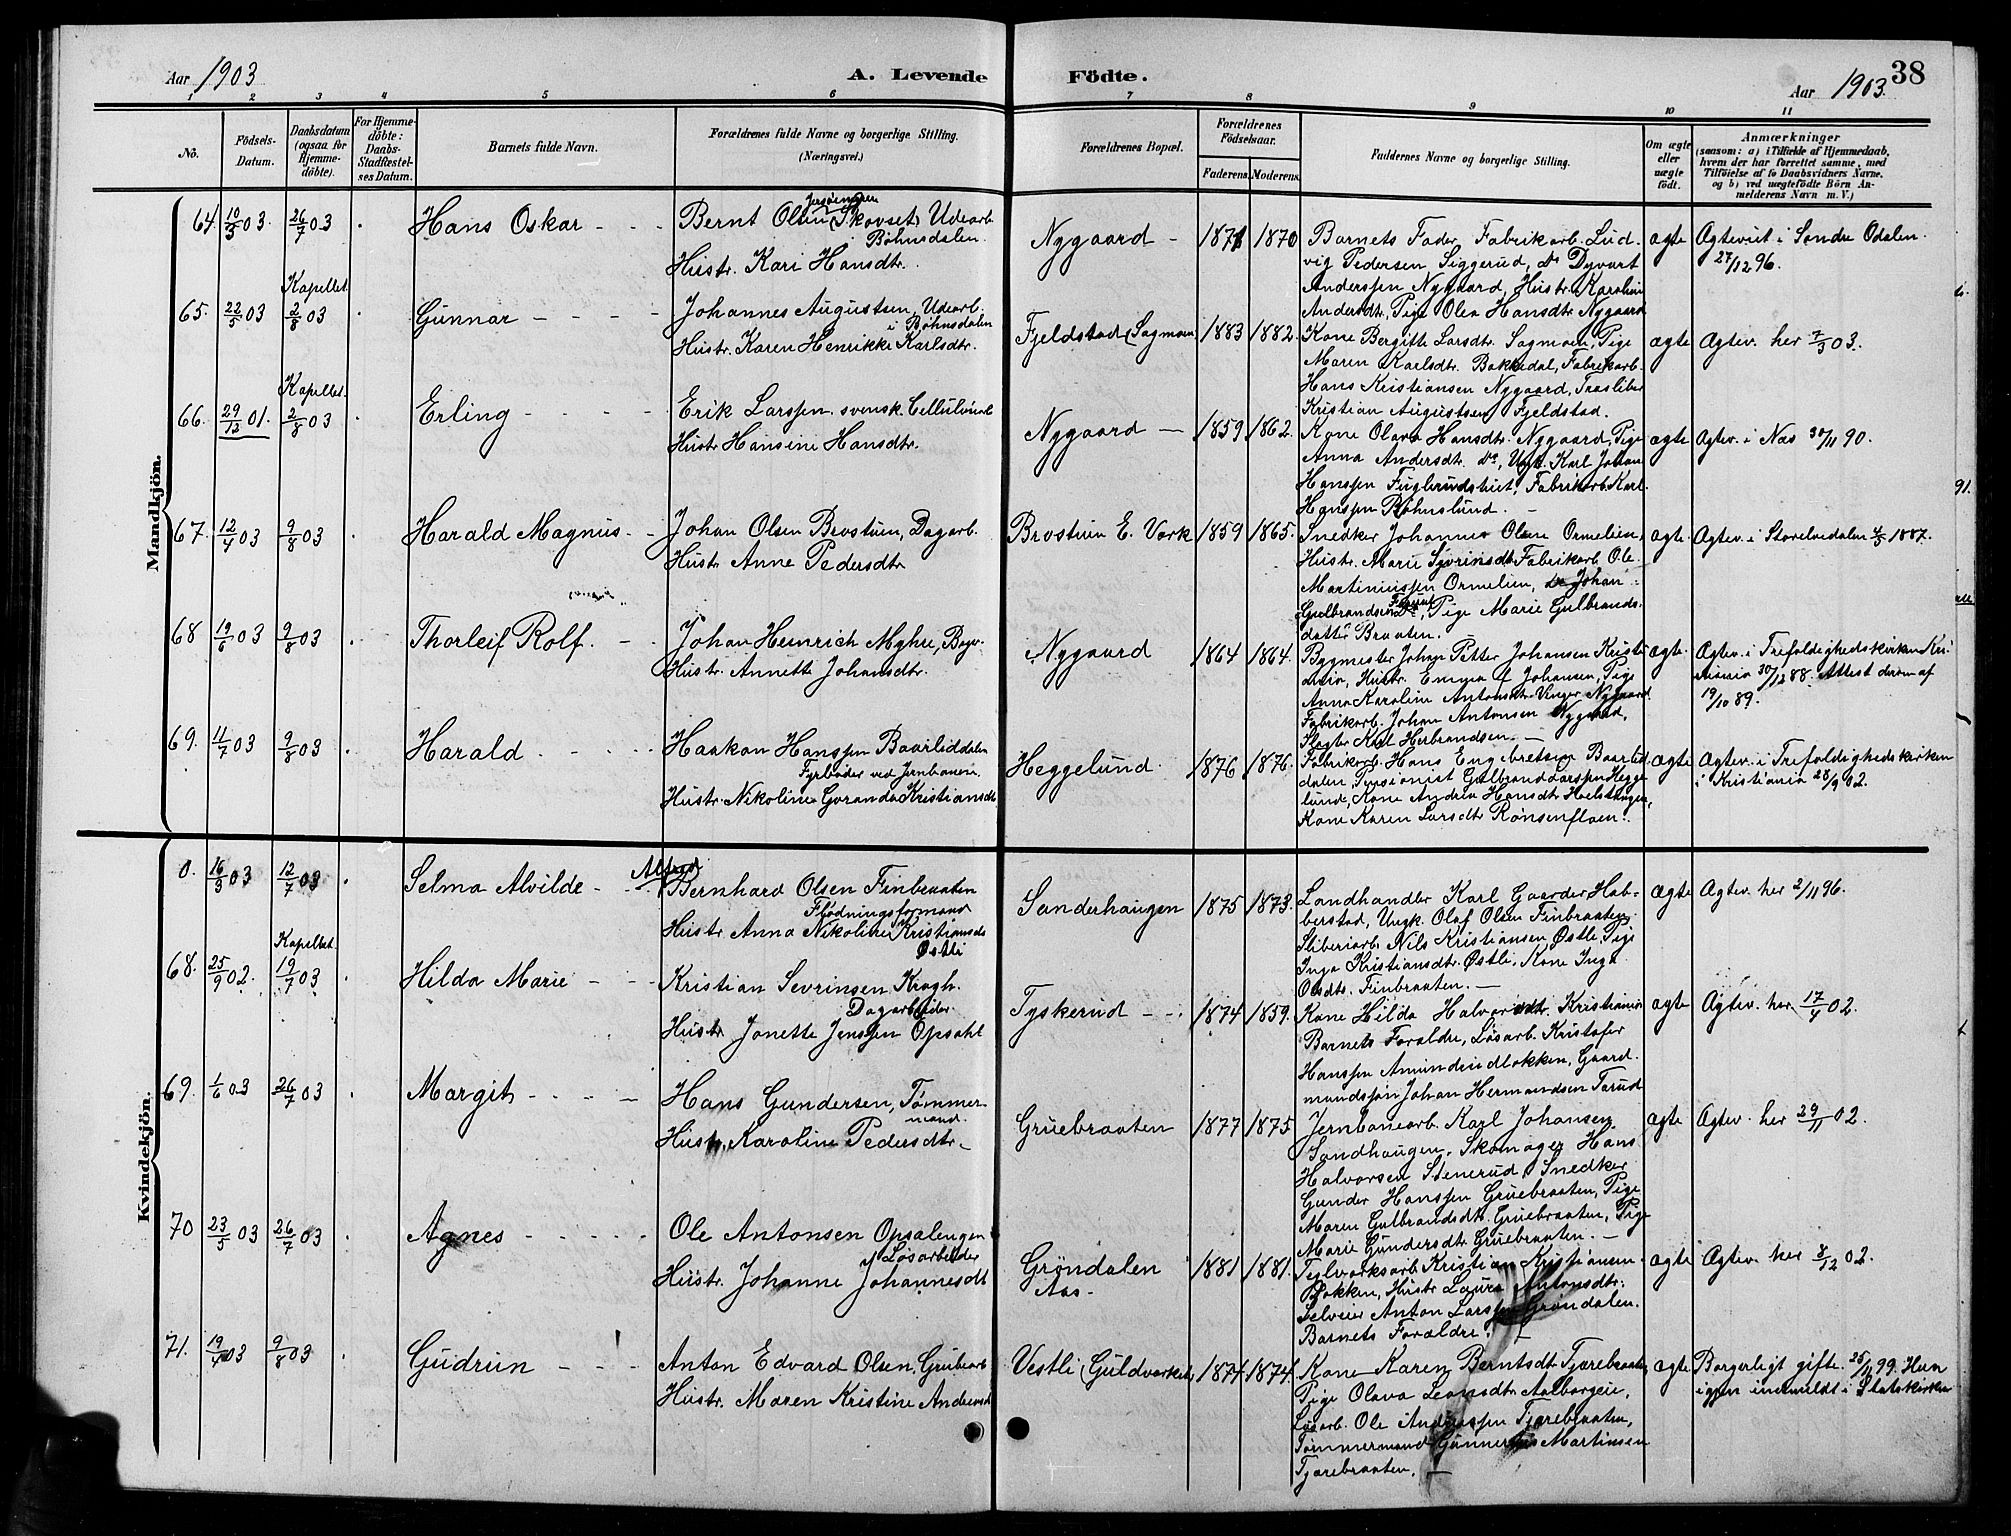 Aar 1903
A. Levende
Födte.
Aar 1903.
38
1 2 3 4 5 6 7 8 9 10 11
No.
Födsels-
Datum.
Daabsdatum
(ogsaa for
Hjemme-
döbte).
For Hjemme-
döbte:
Daabs-
Stadfæstel-
ses Datum.
Barnets fulde Navn.
Forældrenes fulde Navne og borgerlige Stilling.
(Næringsvei.)
Forældrenes Bopæl.
Forældrenes
Födselsaar.
Faderens.
Moderens.
Faddernes Navne og borgerlige Stilling.
Om ægte
eller
uægte
født.
Anmærkninger
(saasom: a) i Tilfælde af Hjemmedaab,
hvem der har forrettet samme, med
Tilföielse af to Daabsvidners Navne,
og b) ved uægtefödte Börn An-
melderens Navn m. V.)
Mandkjön.
64. 10/5 03 26/7 03 Hans Oskar
Bernt Olsen Skovset, Udearb.
Bøhnsdalen.
Hustr. Kari Hansdtr.
Nygaard - 1871 1870
Barnets Fader, Fabrikarb. Lud-
vig Pedersen Siggerud, do Dyvart
Anderssen Nygaard, Hustr. Karoline
Andersdtr, Pige Olea Hansdtr Nygaard
ægte
Ægteviet i Søndre Odalen
27/12 96.
65. 22/5 03 Kapellet 2/8 03 Gunnar
Johannes Augustsen, Udearb.
i Bøhnsdalen
Hustr. Karen Henrikke Karlsdtr.
Fjeldstad (Sagmoen 1883 1882.
Kone Bergitte Larsdtr. Sagmoen, Pige
Maren Karlsdtr. Bakkedal, Fabrikarb.
Hans Kristiansen Nygaard, Træsliber
Kristian Augustsen Fjeldstad.
ægte
Ægtev. her 7/3 03.
66. 29/12 01. Kapellet 2/8 03 Erling
Erik Larssen. svensk. Cellulosearb
Hustr. Hansine Hansdtr.
Nygaard - 1859 1862.
Kone Olava Hansdtr. Nygaard, Pige
Anna Andersdtr. do, Ungk. Karl Johan
Hanssen Fuglerudstuet, Fabrikarb. Karl
Hanssen Bøhnslund.
ægte
Ægtev. i Næs 30/11 90.
67. 12/4 03 9/8 03 Harald Magnus
Johan Olsen Brostuen, Dagarb.
Hustr. Anne Pedersdtr
Brostuen E. Værk 1859 1865.
Snedker Johannes Olsen Ormelien,
Hustr. Marie Syvrinsdtr. Fabrikarb. Ole
Martiniussen Ormelien, do Johan
Gulbrandsen do, Pige Marie Gulbrands-
datter Braaten.
ægte.
Ægtev. i Storelvedalen 4/5 1887.
68 19/6 03 9/8 03 Thorleif Rolf.
Johan Heinrich Myhre, Bogv.
Hustr. Annette Johansdtr.
Nygaard 1864 1864.
Bygmester Johan Petter Johansen Kristi-
ania, Hustr. Emma Johansen, Pige
Anna Karoline Antonsdtr. Vinger Nygaard
Fabrikarb. Johan Antonsen Nygaard,
Slagter Karl Herbrandsen.
ægte.
Ægtev. i Trefoldighedskirken Kri-
stiania 30/12 88. Attest derom af
19/10 89.
69. 11/7 03 9/8 03 Harald
Haakon Hanssen Baarliddalen
Fyrbøder ved Jernbanen.
Hustr. Nikoline Goranda Kristiansdt
Heggelund 1876 1876.
Fabrikarb. Hans Engebretsen Baarlid-
dalen, Pensionist Gulbrand Larssen Hegge-
lund, Kone Andrea Hansdtr Holsthagen,
Kone Karen Larsdtr Rønsenfloen.
ægte
Ægtev. i Trefoldighedskirken
i Kristiania 28/9 02.
Kvindekjön.
16/3 03 12/7 03 Selma Alvilde
Alfred
Bernhard Olsen Finbraaten
Flødningsformand
Hustr Anna Nikoline Kristiansdt
Østli
Sanderhaugen 1875 1873.
Landhandler Karl Gaarder Hab-
berstad, Ungk. Olaf Olsen Finbraaten
Sliberiarb. Nils Kristiansen Østli, Pige
Inga Kristiansdtr. Østli, Kone Inga
Olsdtr. Finbraaten.
ægte
Ægtev. her 2/11 96.
68. 25/9 02. Kapellet 19/7 03 Hilda Marie
Kristian Sevrinsen Kragh.
Dagarbeider.
Hustr Jonette Jenssen Opsahl
Tyskerud - 1874 1859.
Kone Hilda Halvorsdtr. Kristiania
Barnets Forældre, Løsarb. Kristofer
Hanssen Amundrudløkken, Gaard-
mandssøn Johan Hermandsen Tarud
ægte
Ægtev. her 17/4 02.
69. 1/6 03 26/7 03 Margit
Hans Gundersen, Tømmer-
mand.
Hustr. Karoline Pedersdtr
Gruebraaten 1877 1875
Jernbanearb. Karl Johansen
Sandhaugen, Skomager Hans
Halvorsen Stenerud, Snedker
Gunder Hanssen Gruebraaten, Pige
Maren Gulbrandsdtr. Gruebraaten, Pige
Marie Gundersdtr Gruebraaten.
ægte
Ægtev. her 29/11 02.
70 23/5 03 26/7 03 Agnes
Ole Antonsen Opsalengen
Løsarbeider
Hustr. Johanne Johannesdt
Grøndalen
Aas 1881 1881.
Teglværksarb. Kristian Kristiansen
Bakken, Hustr Laura Antonsdtr.
Selveier Anton Larssen Grøndalen.
Barnets Forældre.
ægte
Ægtev. her 8/12 02.
71. 19/4 03 9/8 03 Gudrun
Anton Edvard Olsen, Grubearb
Hustr. Maren Kristine Andersdt
Vestli (Guldværket) 1874 1874.
Kone Karen Berntsdtr Tjærebraaten
Pige Olava Leonsdtr Aalborgeie,
Løsarb. Ole Andreassen Tjærebraaten,
Tømmermand Gunnerius Martinsen
Tjærebraaten.
ægte
Borgerligt gifte. 25/11 99. Hun
igjen indmeldt i Statskirken